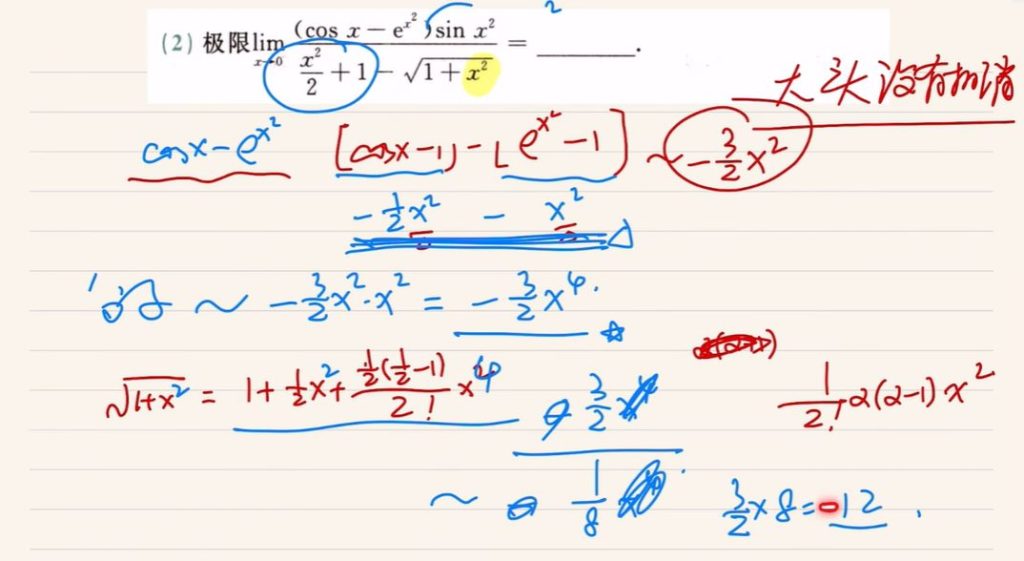 (2) 极限lim_{x→0} (cos x − e^{x²})sin x² / (x²/2 + 1 − √(1 + x²)) = ______.
2
大头没有抵消
cosx − e^{x²} [cosx − 1] − [e^{x²} − 1] ~ −3/2 x²
−1/2 x² − x²
分子 ~ −3/2 x²·x² = −3/2 x⁴.
√(1+x²) = 1 + 1/2 x² + (1/2(1/2−1))/2! x⁴
3/2
1/2! α(α−1)x²
~ 1/8
3/2 × 8 = −12.